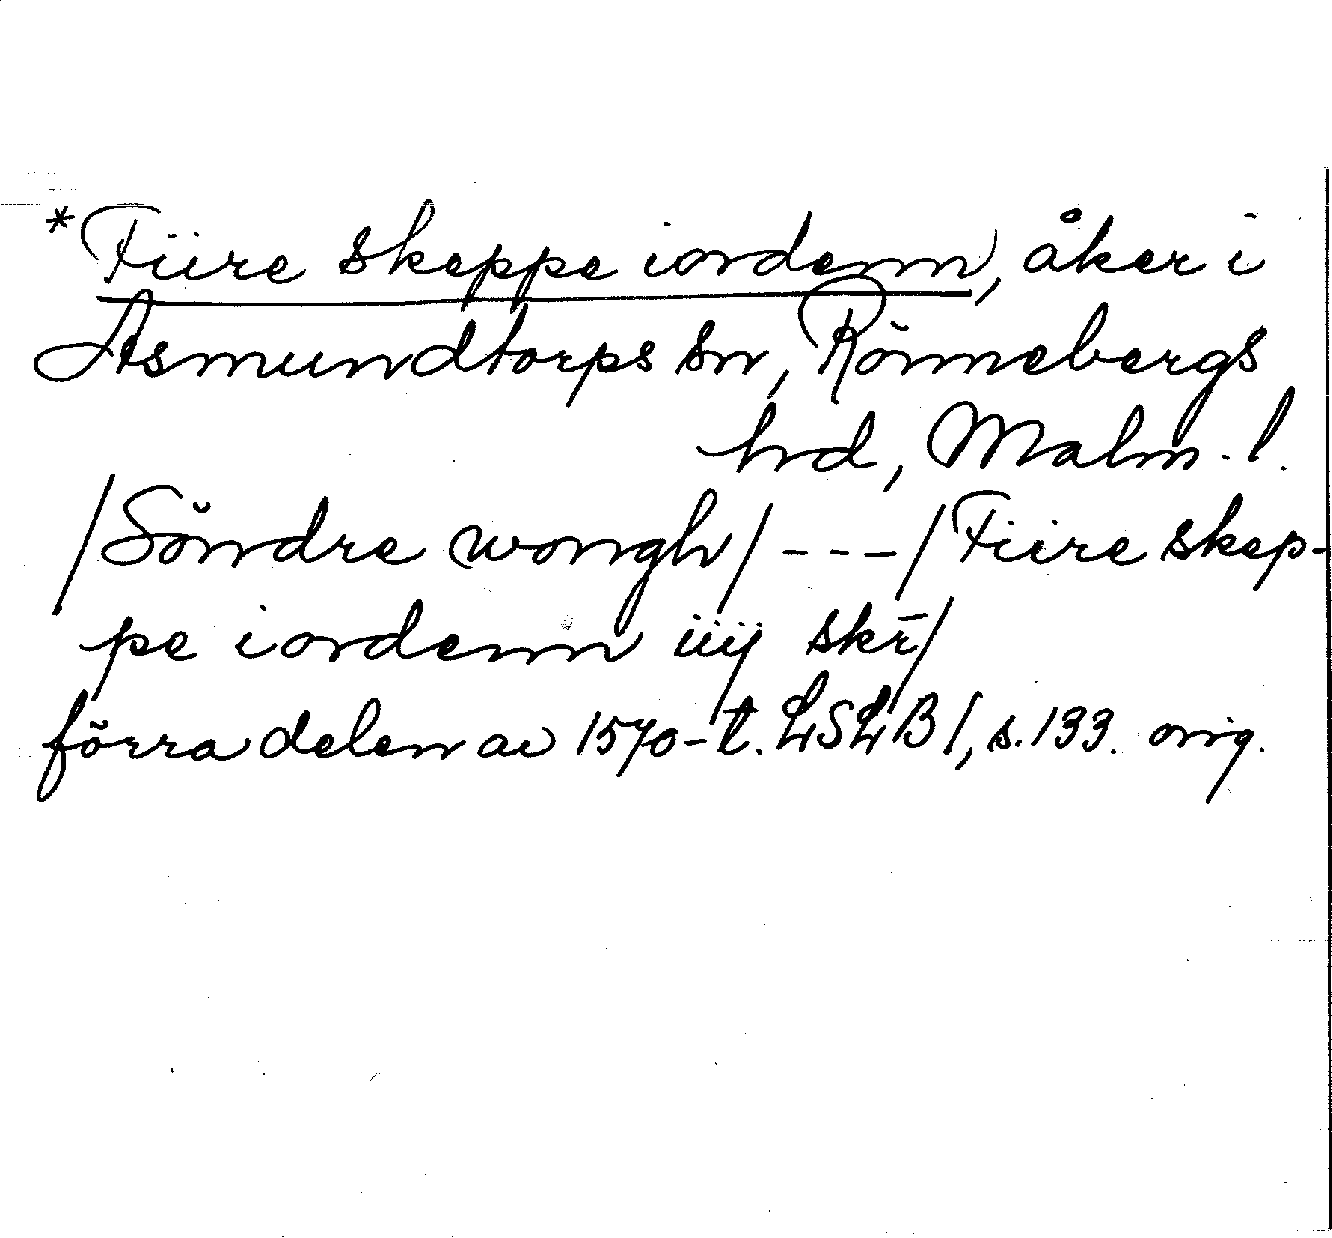 *Fiire skeppe iordenn, åker i
Asmundtorps sn, Rönnebergs
hd, Malm. l.
/Söndre wongh/ - - - /Fiire skep-
pe iordenn iiij skr̄/
förra delen av 1570-t. LSLB I, s. 133. orig.